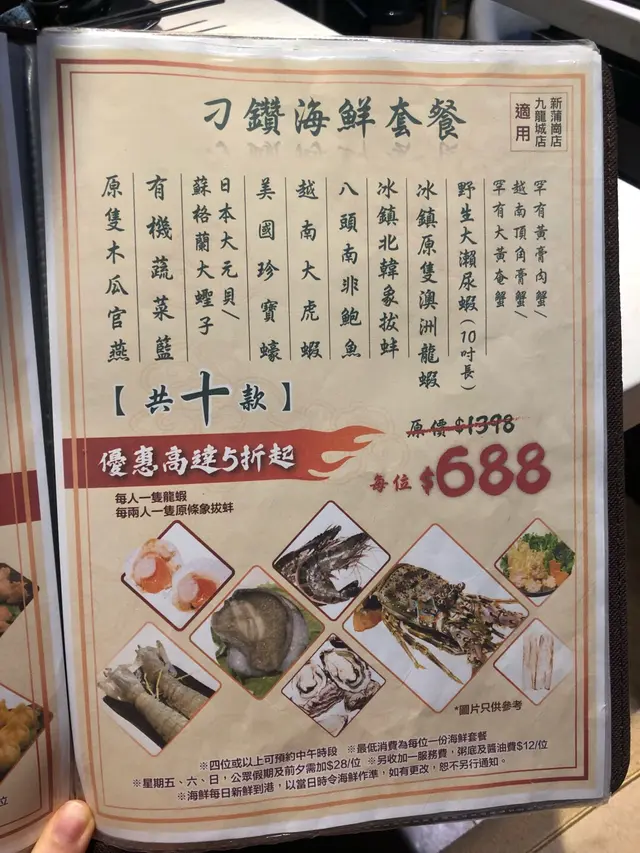 刁鑽海鮮套餐
新蒲崗店
九龍城店
適用
罕有黃膏肉蟹/
越南頂角膏蟹/
罕有大黃奄蟹
野生大瀨尿蝦(10吋長)
冰鎮原隻澳洲龍蝦
冰鎮北韓象拔蚌
八頭南非鮑魚
越南大虎蝦
美國珍寶蠔
日本大元貝/
蘇格蘭大蟶子
有機蔬菜籃
原隻木瓜官燕
【共十款】
原價$1398
優惠高達5折起
每位$688
每人一隻龍蝦
每兩人一隻原條象拔蚌
*圖片只供參考
※四位或以上可預約中午時段 ※最低消費為每位一份海鮮套餐
※星期五、六、日，公眾假期及前夕需加$28/位 ※另收加一服務費，粥底及醬油費$12/位
※海鮮每日新鮮到港，以當日時令海鮮作準，如有更改，恕不另行通知。
位